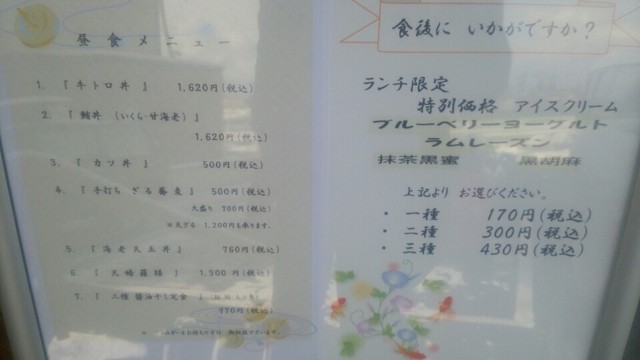 昼食メニュー
1. 『牛トロ丼』 1,620円(税込)
2. 『鮪丼 (いくら・甘海老)』
1,620円(税込)
3. 『カツ丼』 500円(税込)
4. 『手打ち ざる蕎麦』 500円(税込)
大盛り 700円(税込)
1,200円も承ります。
5. 『海老天玉丼』 760円(税込)
6. 『天婦羅膳』 1,500円(税込)
7. 『二種 醤油干し定食』
970円(税込)
食後に いかがですか？
ランチ限定
特別価格 アイスクリーム
ブルーベリーヨーグルト
ラムレーズン
抹茶黒蜜 黒胡麻
上記より お選びください。
・ 一種 170円(税込)
・ 二種 300円(税込)
・ 三種 430円(税込)